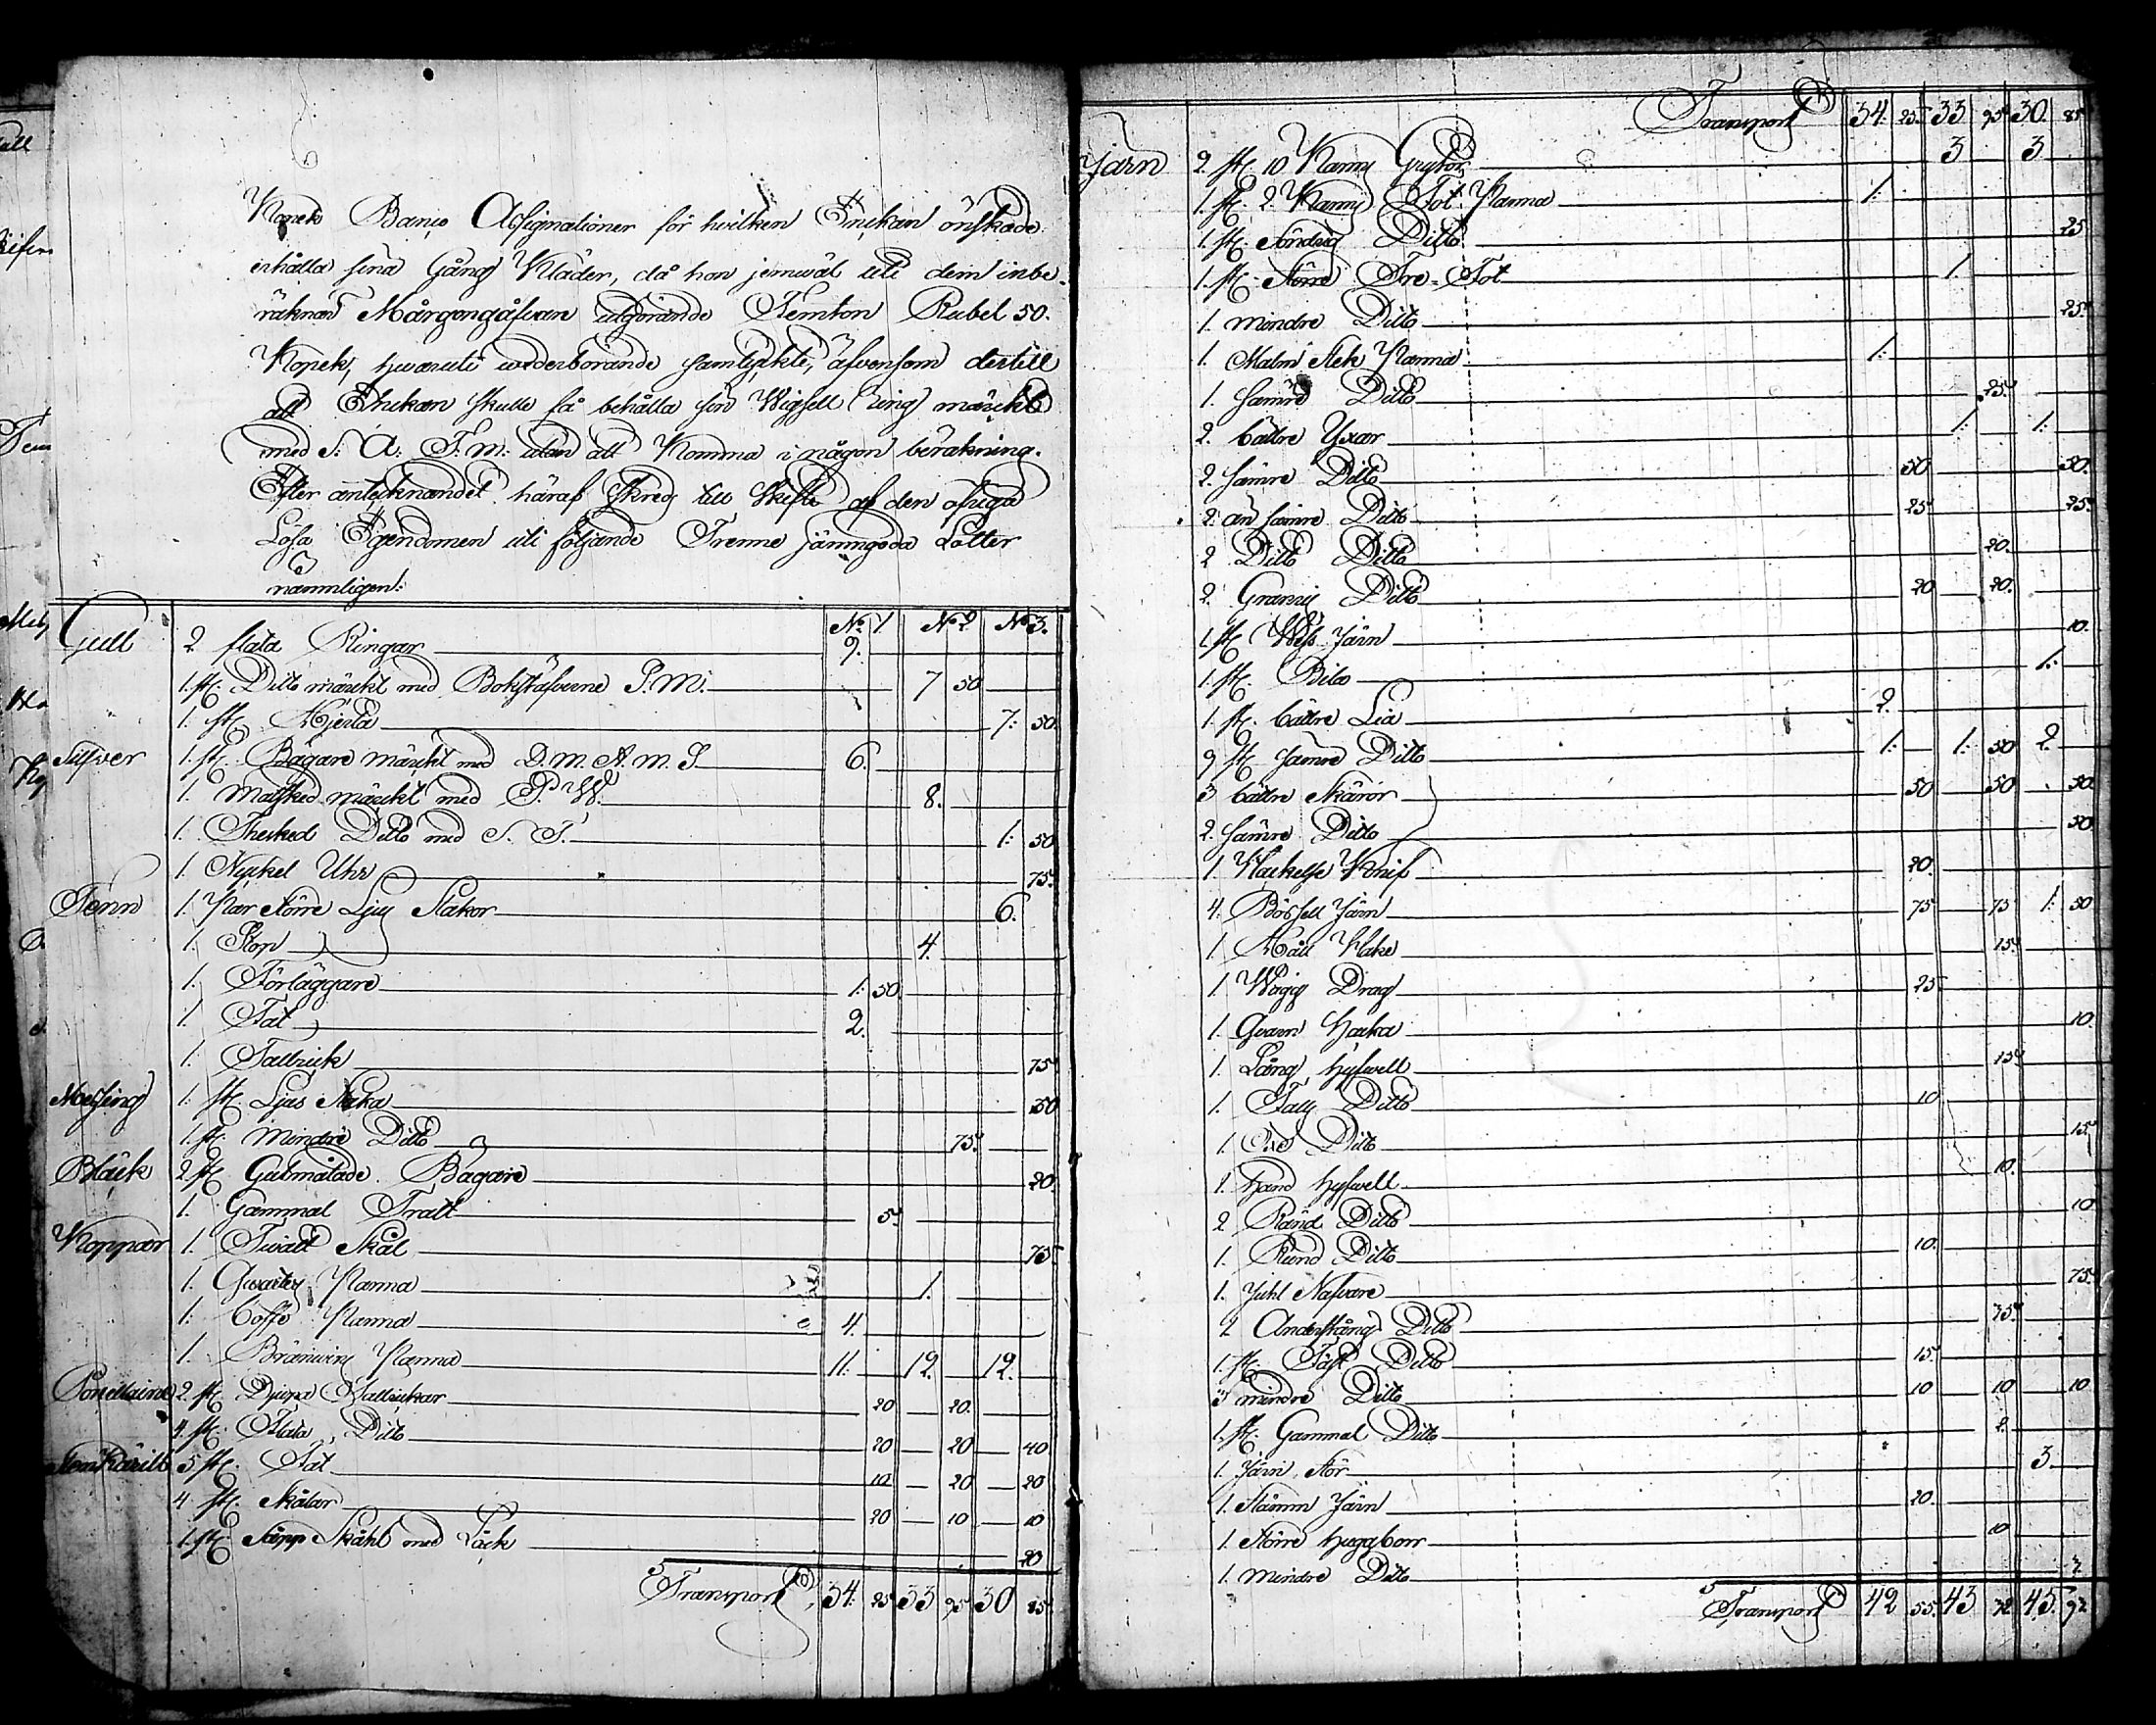 Kopek Banco Assignationer för hvilken Enckan önskade
erhålla sina Gång Kläder, då hon jemwäl uti dem inbe-
räknat Mårgongåfvan utgörande Femton Rubel 50.
Kopek, hwaruti wederbörande samtyckte, äfvensom dertill
att Enckan skulle få behålla sin Wigsell Ring märckt
med S: A: F: m: utan att Komma i någon beräkning.
Efter antecknandet häraf skreds till Skifte af den öfriga
Lösa Egendomen uti följande Trenne jämngoda Lotter
nämmligen:
No. 1 No 2 No 3.
Gull 2 flata Ringar 9.
1. st. Ditto märckt med Bokstäfverne P. M. 7 50
1. st. Hjerta 7: 50.
Silfver 1. st. Bägare märckt med D. m. A. m. S 6.
1. Matsked märckt med P. W. 8.
1. Thesked Ditto med S. T. 1: 50
1. Nyckel Uhr 75.
Tenn 1. Par större Ljus Stakor 6.
1. Stop 4.
1. Förläggare 1: 50.
1. Fat 2.
1. Tallrick 75
Messing 1. st. Ljus Staka 50
1. st. mindre Ditto 75.
Bläck 2 st. Gulmålade Bägare 20.
1. Gammal Tratt 5.
Koppar 1. Twätt Skål 75
1. Qwarters Panna 1.
1. Coffe Panna 4.
1. Bränwins Panna 11. 12. 12.
Porcellaine 2. st. Djupa Tallrickar 20 20.
4. st. Flata Ditto 20 20 40
Sten Kärill 5 st. Fat 10 20 20
4 st. Skålar 20 10 10
1. st. Såpp Skåhl med Låck 20
Transport 34. 25 33 95 30 85
Transport 34. 25. 33 95 30. 85
Järn 2 st. 10 Kanns Grytor 3 3
1. st. 2 Kanns Fot Panna 1.
1. st. Söndrig Ditto 25
1. st. Större Tre-Fot 1.
1. mindre Ditto 25.
1. Malm Stek Panna 1.
1. Sämre Ditto 25.
2. bättre Yxor 1. 1.
2. Sämre Ditto 50 50.
2. än sämre Ditto 25 25.
2 Ditto Ditto 20.
2. Ditto 20 20.
1. st. Järn 10.
1. st. Bila 1.
1. st. bättre Lia 2.
9 st. sämre Ditto 1. 1. 50 2.
3 bättre Skäror 50 50 50
2. Sämre Ditto 50
1 Hackelse Knif 20.
4. Järn 75 75 1. 50
1 Håll Hake 15.
1. Drag 25
1. Qwarn Hacka 10.
1. Lång Hyfwell 15
1. Ditto 10
1. Ditto 15.
1. Hand Hyfwell 10.
2 Ditto 10
1. Ditto 10.
1. Juhl Nafvare 75
2 Ditto 75
1. st. Ditto 15.
3 mindre Ditto 10 10 10
1. st. Gammal Ditto 2.
1. Järn Stör 3.
1. Stämm Järn 20.
1. Större Huggborr 10
1. mindre Ditto 7
Transport 42 55. 43 72 45. 92